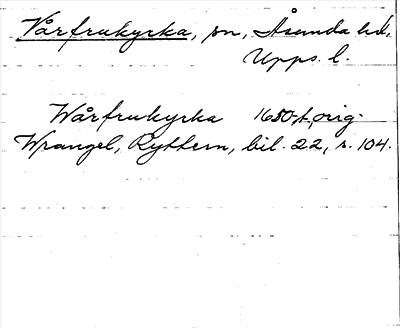 Vårfrukyrka, sn, Åsunda hd,
Upps. l.
Wårfrukyrka 1680-t, orig.
Wrangel, Ryttern, bil. 22, s. 104.